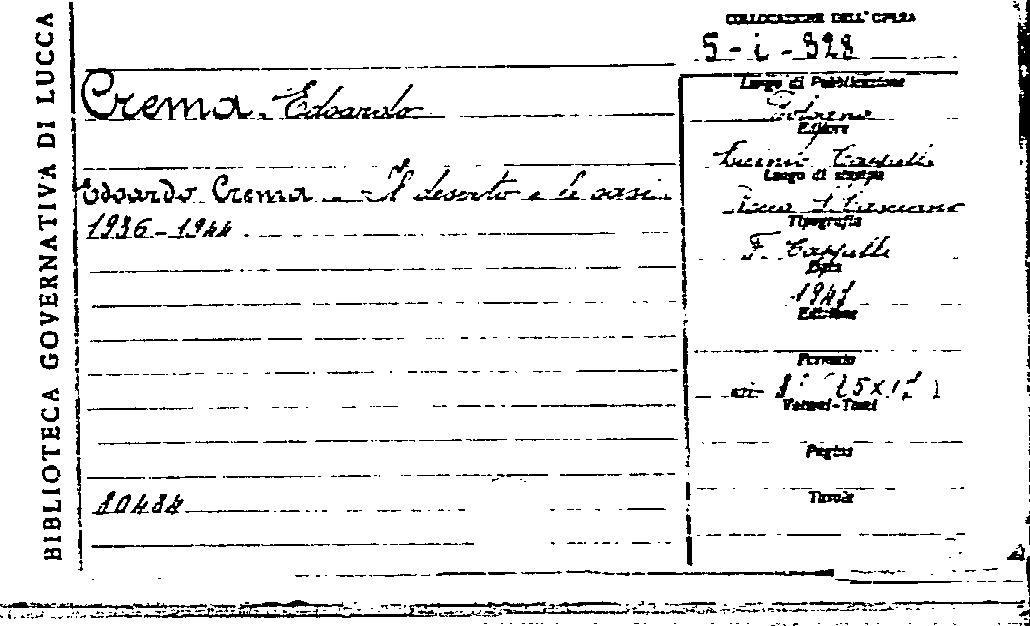 BIBLIOTECA GOVERNATIVA DI LUCCA
COLLOCAZIONE DELL'OPERA
5-i-928
Crema Edoardo
Edoardo Crema - Il deserto e le oasi
1936-1944
80484
Luogo di Pubblicazione
Bologna
Editore
Licinio Cappelli
Luogo di stampa
Rocca S. Casciano
Tipografia
F. Cappelli
Data
Edizione
Formato
Volumi-Tomi
Pagine
Tavole